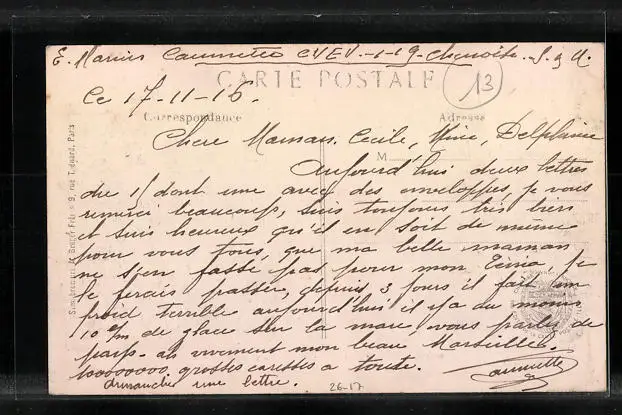 E. Marius Caumette CVEV - 119 - S. & M.
CARTE POSTALE
13
Ce 17-11-15.
Correspondance
Adresse
Chere Maman. Cecile, Mine, Delphine
M
Aujourd'hui deux lettres
du 15 dont une avec des enveloppes, je vous
remerci beaucoup, suis toujours très bien
et suis heureux qu'il en soit de meme
pour vous tous, que ma belle maman
ne s'en fasse pas pour mon je
le ferais passer, depuis 3 jours il fait un
froid terrible aujourd'hui il y a au moins
10 c/m de glace sur la mare, vous parlez de
pays - ah vivement mon beau Marseille.
10000000, grosses caresses a toute. Caumette
dimanche une lettre.
26-17
9, rue Tiquard, Paris